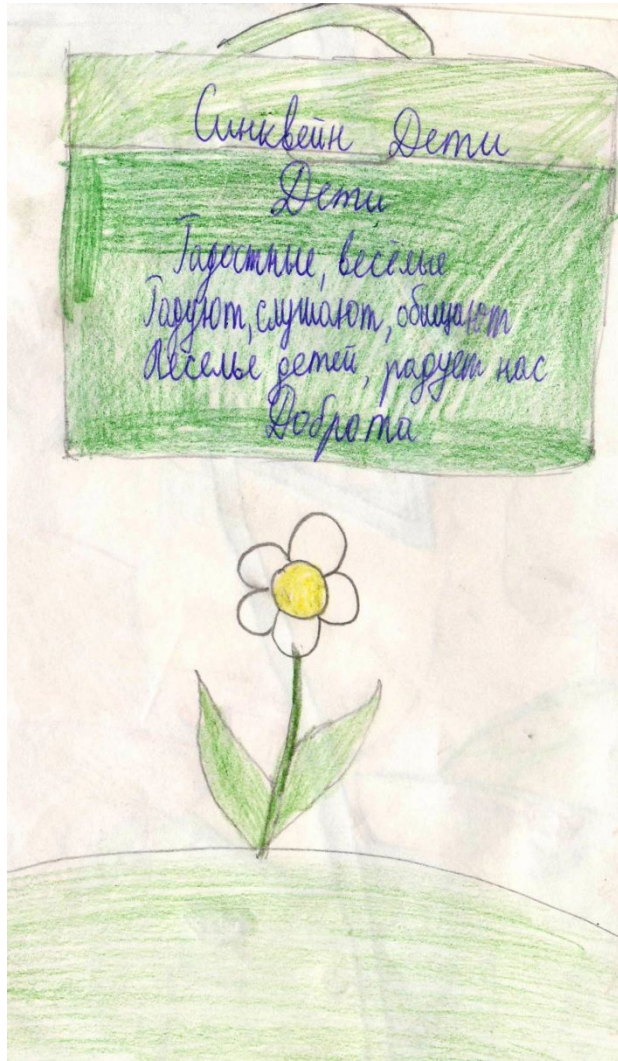 Синквейн Дети
Дети
Радостные, весёлые
Радуют, слушают, обещают
Веселье детей, радует нас
Доброта